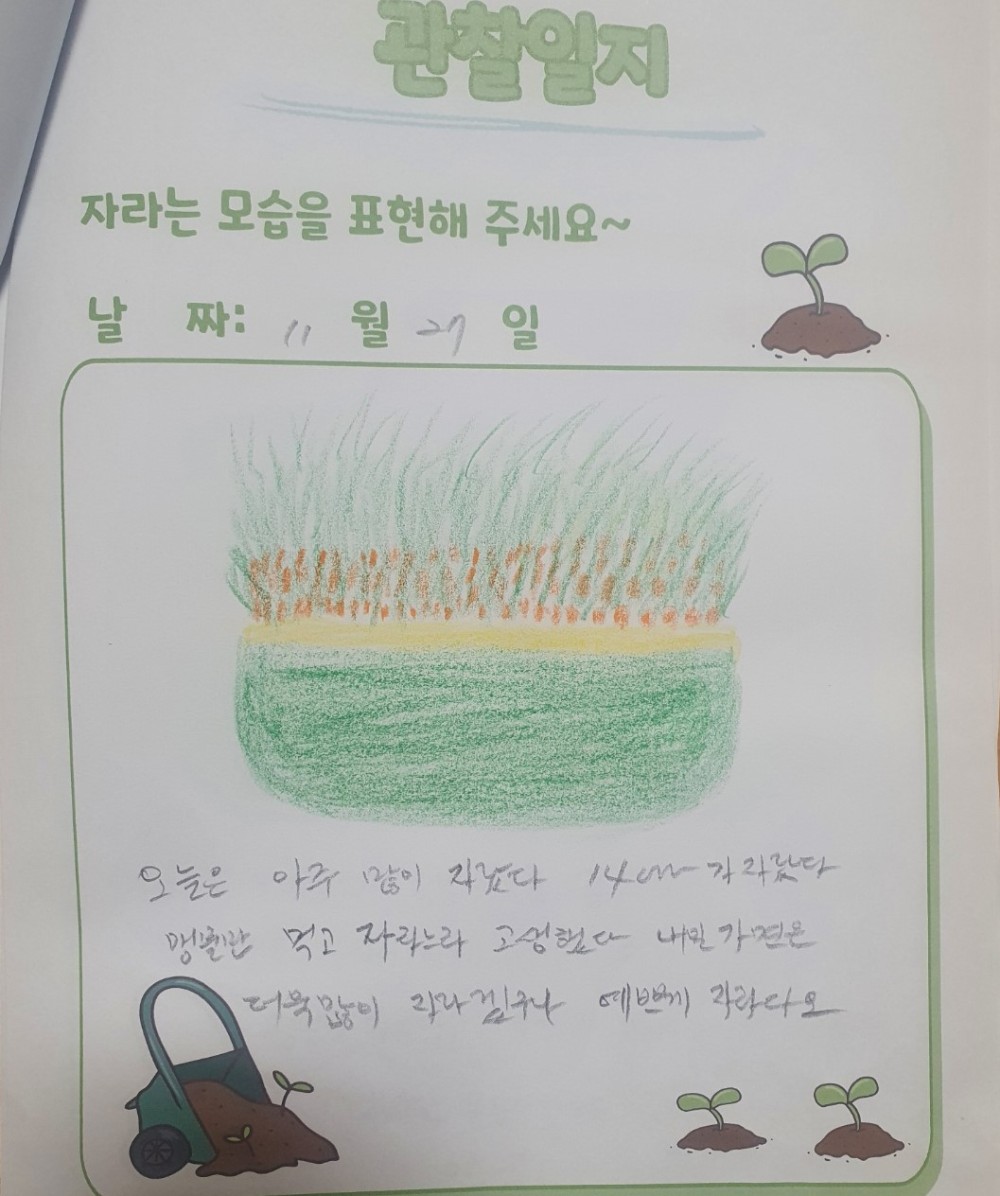 관찰일지
자라는 모습을 표현해 주세요~
날 짜: 11 월 27 일
오늘은 아주 많이 자랐다 14cm가 자랐다
맹물만 먹고 자라느라 고생했다 내일
더욱많이 자라겠구나 예쁘게 자라다오